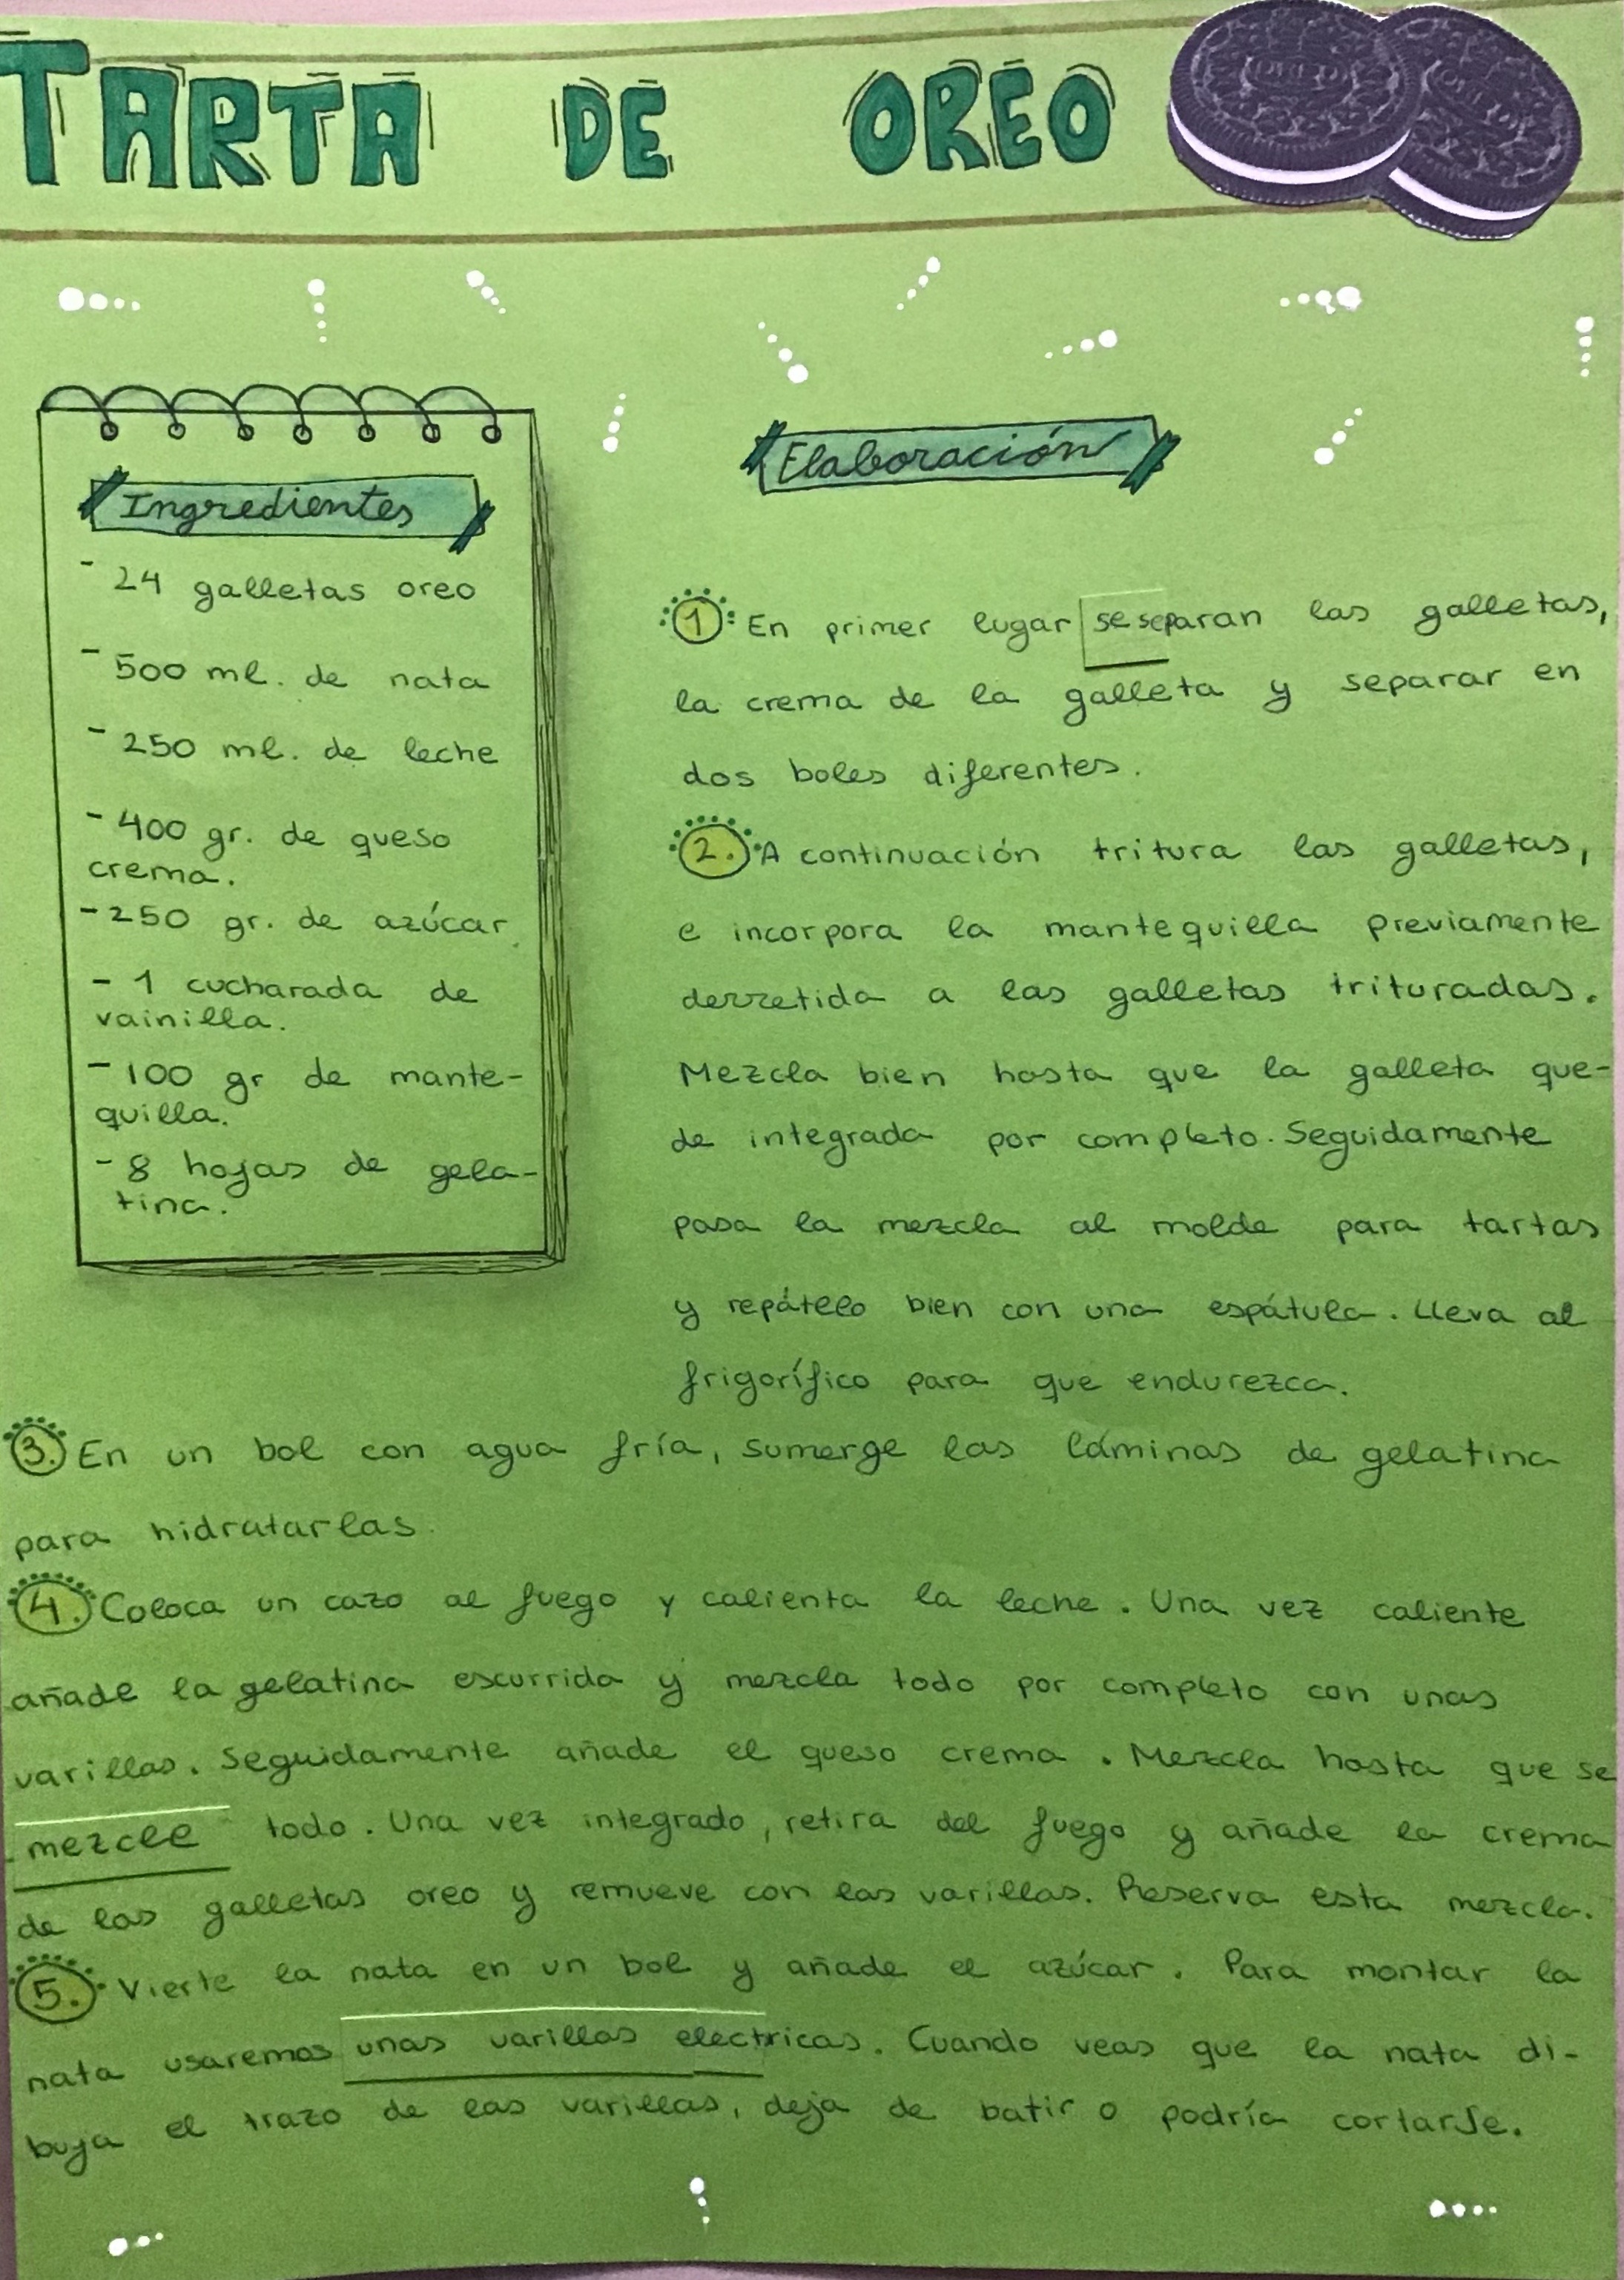 TARTA DE OREO
Ingredientes
- 24 galletas oreo
- 500 ml. de nata
- 250 ml. de leche
- 400 gr. de queso
crema.
- 250 gr. de azúcar
- 1 cucharada de
vainilla.
- 100 gr de mante-
quilla.
- 8 hojas de gela-
tina.
Elaboración
1 En primer lugar se separan las galletas,
la crema de la galleta y separar en
dos boles diferentes.
2. A continuación tritura las galletas,
e incorpora la mantequilla previamente
derretida a las galletas trituradas.
Mezcla bien hasta que la galleta que-
de integrada por completo. Seguidamente
pasa la mezcla al molde para tartas
y repátelo bien con una espátula. Lleva al
frigorífico para que endurezca.
3. En un bol con agua fría, sumerge las láminas de gelatina
para hidratarlas.
4. Coloca un cazo al fuego y calienta la leche. Una vez caliente
añade la gelatina escurrida y mezcla todo por completo con unas
varillas. Seguidamente añade el queso crema. Mezcla hasta que se
mezcle todo. Una vez integrado, retira del fuego y añade la crema
de las galletas oreo y remueve con las varillas. Reserva esta mezcla.
5. Vierte la nata en un bol y añade el azúcar. Para montar la
nata usaremos unas varillas electricas. Cuando veas que la nata di-
buja el trazo de las varillas, deja de batir o podría cortarse.